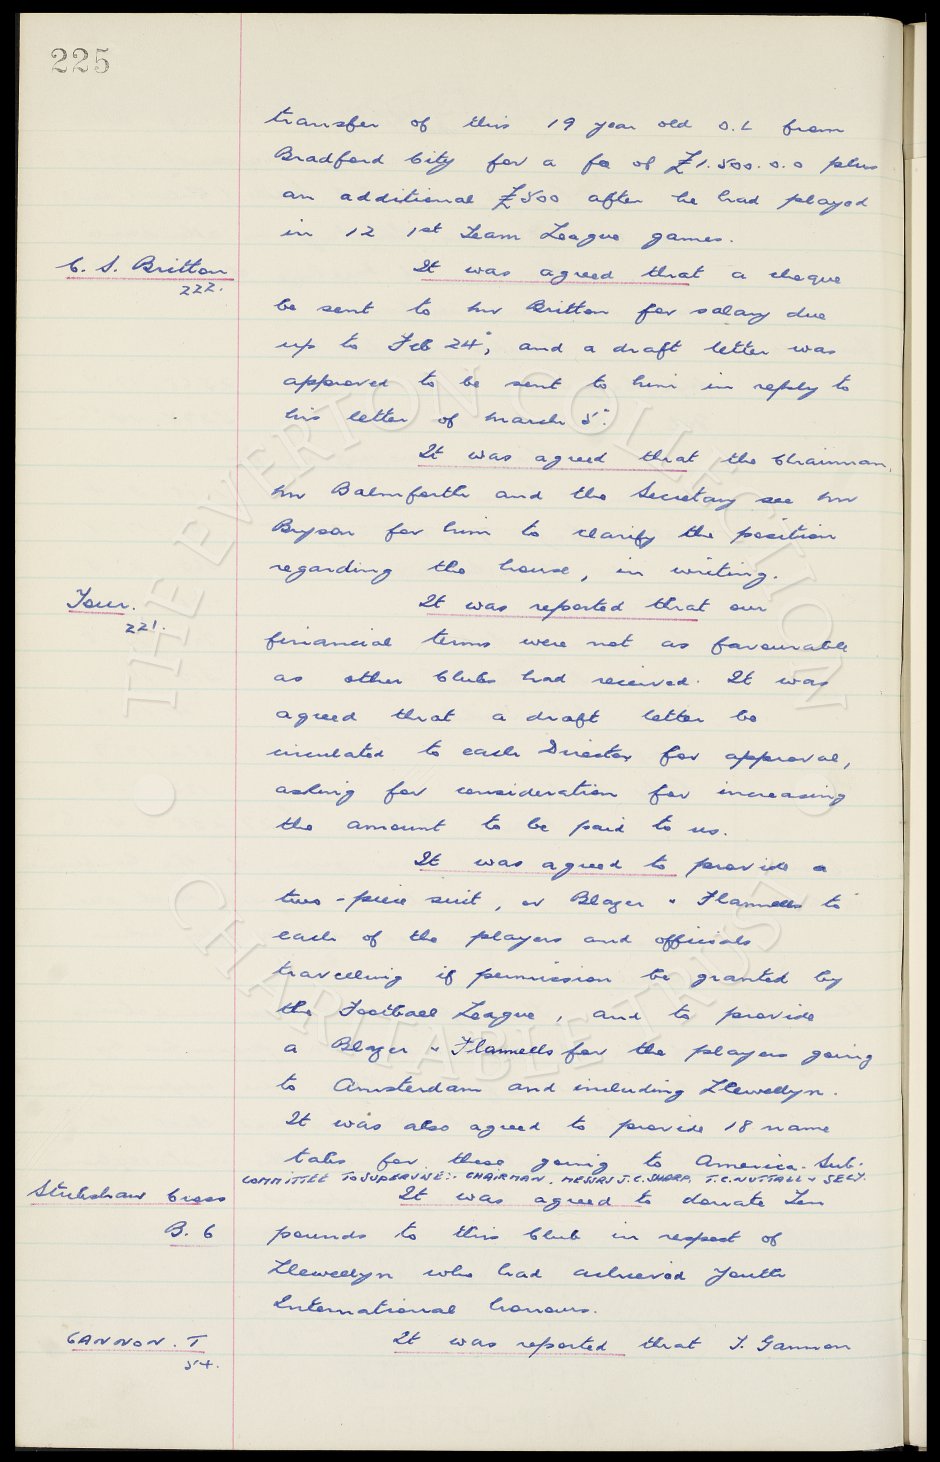 225
transfer of this 19 year old O.L from
Bradford City for a fe of £1.500.0.0 plus
an additional £500 after he had played
in 12 1st Team League games.
C. S. Britton
222.
It was agreed that a cheque
be sent to Mr Britton for salary due
up to Feb 24", and a draft letter was
approved to be sent to him in reply to
his letter of March 5".
It was agreed that the Chairman,
Mr Balmforth and the Secretary see Mr
Bryson for him to clarify the position
regarding the house, in writing.
Tour.
221.
It was reported that our
financial terms were not as favourable
as other Clubs had received. It was
agreed that a draft letter be
circulated to each Director for approval,
asking for consideration for increasing
the amount to be paid to us.
It was agreed to provide a
two-piece suit, or Blazer " Flannells to
each of the players and officials
travelling if permission be granted by
the Football League, and to provide
a Blazer " Flannells for the players going
to Amsterdam and including Llewellyn.
It was also agreed to provide 18 name
tabs for those going to America. Sub.
COMMITTEE TO SUPERVISE:- CHAIRMAN. MESSRS J.C. SHARP, T.C. NUTTALL " SECY.
Stubshaw Cross
B. 6
It was agreed to donate Ten
pounds to this Club in respect of
Llewellyn who had achieved Youth
International honours.
GANNON. T
54.
It was reported that J. Gannon
THE EVERTON COLLECTION
CHARITABLE TRUST